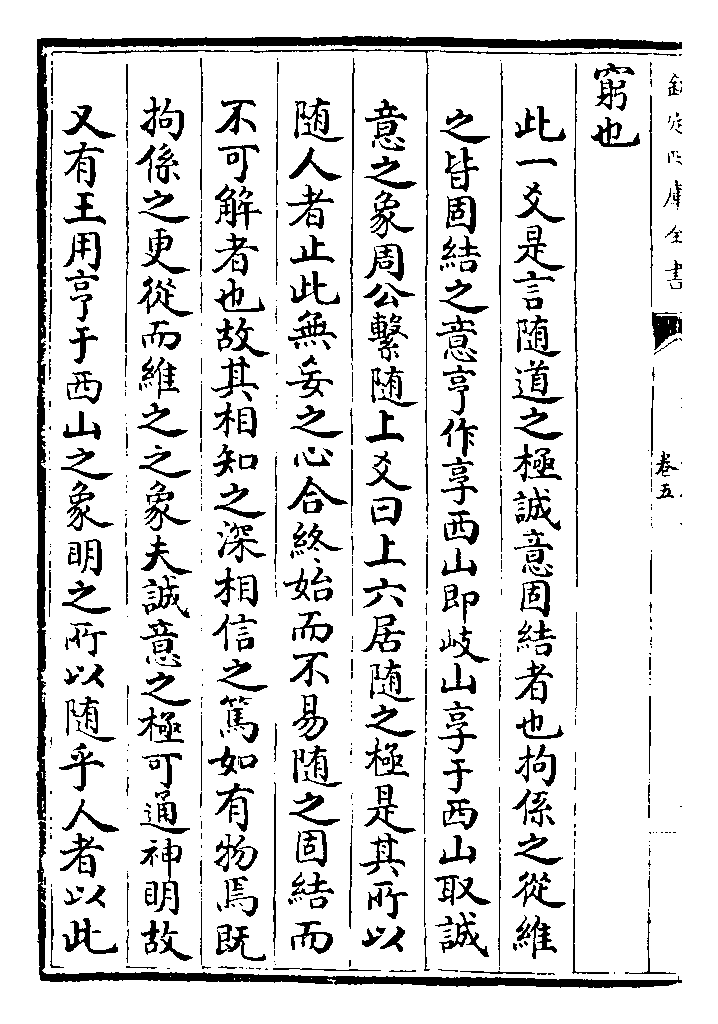 欽定四庫全書
卷五
窮也
此一爻是言随道之極誠意固結者也拘係之從維
之皆固結之意亨作享西山即岐山享于西山取誠
意之象周公繫随上爻曰上六居随之極是其所以
随人者止此無妄之心合終始而不易随之固結而
不可解者也故其相知之深相信之篤如有物焉既
拘係之更從而維之之象夫誠意之極可通神明故
又有王用亨于西山之象明之所以随乎人者以此